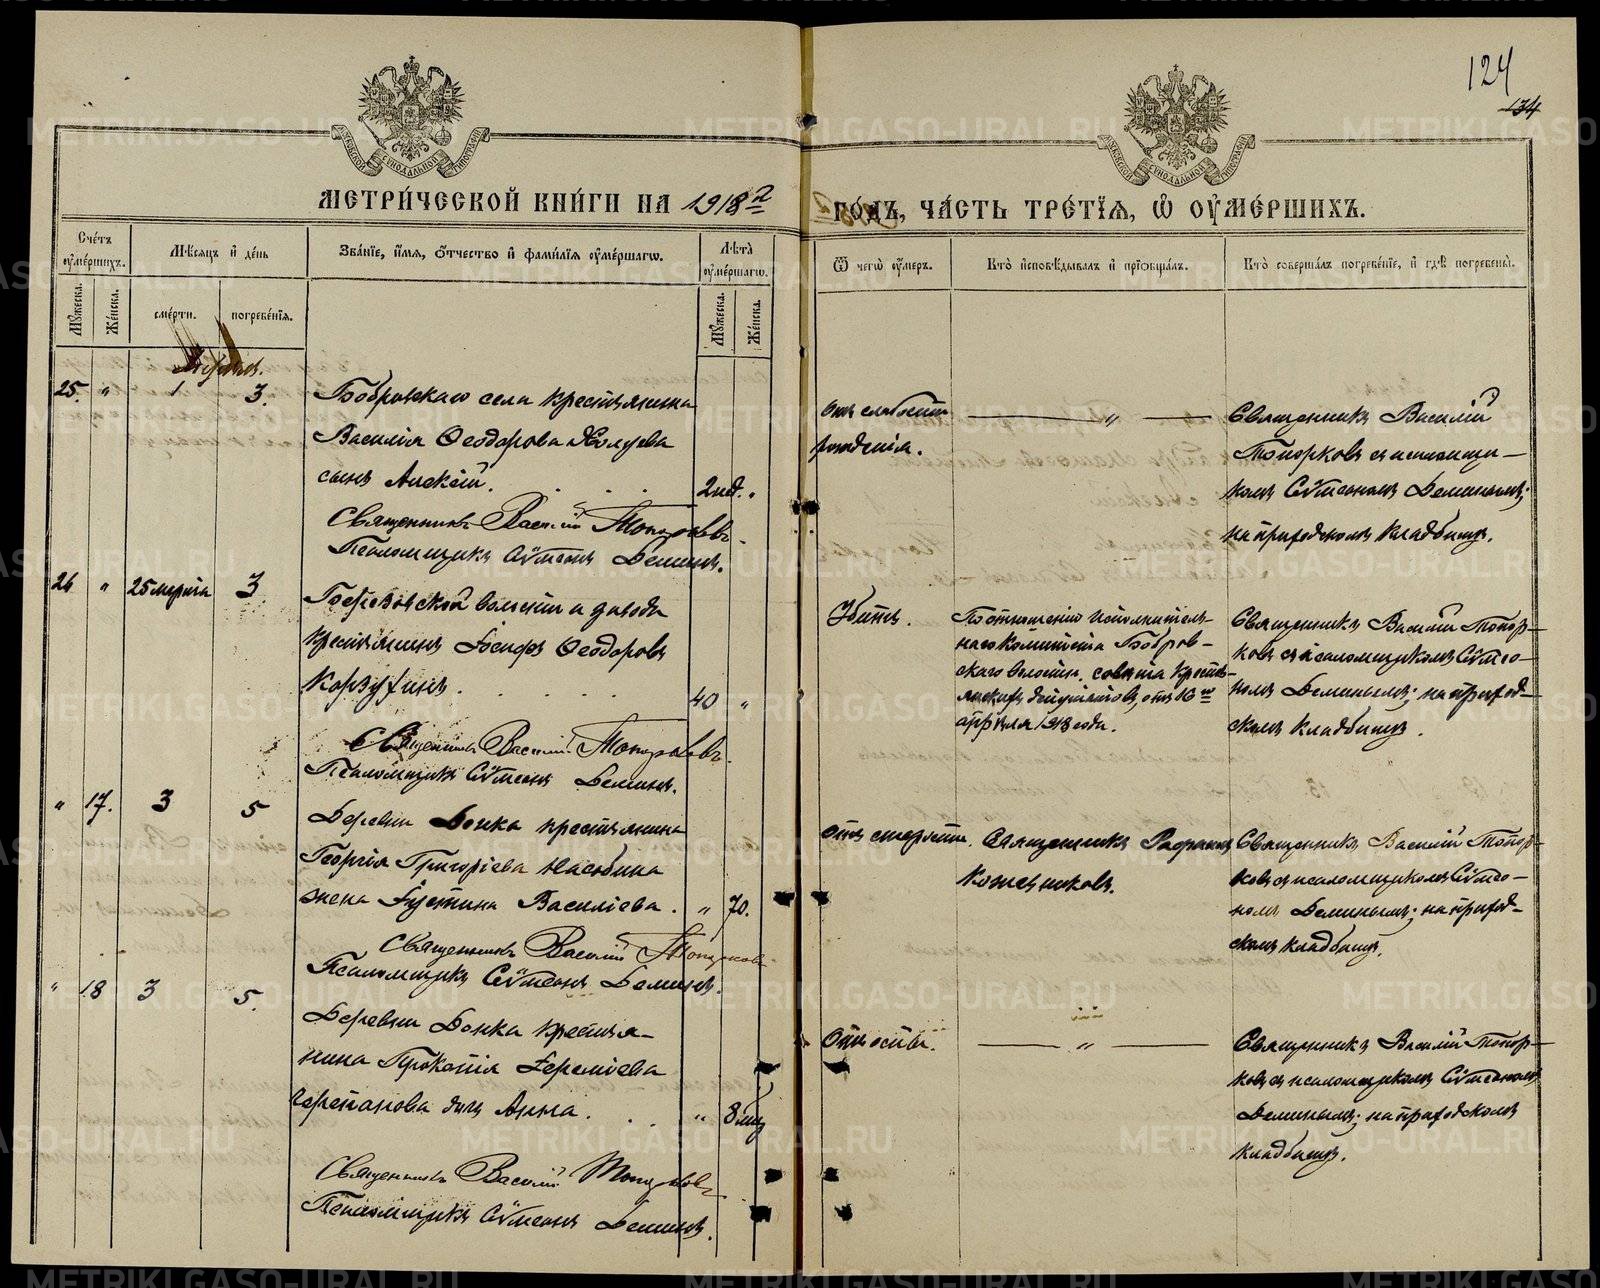 124
134
МЕТРИ́ЧЕСКОЙ КНИ́ГИ НА 1918 г.
ГО́ДЪ, ЧА́СТЬ ТРЕ́ТІЯ, Ѽ ОУМЕ́РШИХЪ.
Сче́тъ оуме́ршихъ.
Мѣсяцъ и де́нь
Зва́ніе, и́мя, ѻ́тчество и фами́лія оуме́ршагѡ.
Лѣта̀ оуме́ршагѡ.
Ѿ чегѡ̀ оу́меръ.
Кто̀ исповѣ́дывалъ и пріѡбща́лъ.
Кто̀ соверша́лъ погребе́ніе, и гдѣ̀ погребены̀.
Му́жеска.
Же́нска.
сме́рти.
погребе́нія.
Му́жеска.
Же́нска.
25. " 1 3.
Бобровскаго села крестьянина
Василія Ѳеодорова
сынъ Алексій. 2 нед. "
Священникъ Василій Топорковъ.
Псаломщикъ Сѵмеонъ Деминъ.
отъ слабости
рожденія.
"
Священникъ Василій
Топорковъ съ псаломщи-
комъ Сѵмеономъ Деминымъ;
на приходскомъ кладбищѣ.
26 " 25 марта 3
волости и завода
крестьянинъ Іосифъ Ѳеодоровъ
Корзухинъ. 40 "
Священникъ Василій Топорковъ.
Псаломщикъ Сѵмеонъ Деминъ.
Убитъ.
По отношенію исполнитель-
наго комитета Бобров-
скаго волостн. совѣта кресть-
янскихъ депутатовъ, отъ 16 го
апрѣля 1918 года.
Священникъ Василій Топор-
ковъ съ псаломщикомъ Сѵмео-
номъ Деминымъ; на приход-
скомъ кладбищѣ.
" 17. 3 5
Деревни крестьянина
Георгія Григоріева
жена Іустина Василіева. " 70.
Священникъ Василій Топорковъ
Псаломщикъ Сѵмеонъ Деминъ.
отъ старости.
Священникъ
Кожевниковъ.
Священникъ Василій Топор-
ковъ съ псаломщикомъ Сѵмео-
номъ Деминымъ; на приход-
скомъ кладбищѣ.
" 18 3 5.
Деревни крестья-
нина Прокопія Іереміева
Черепанова дочь Анна. " 8 мѣс.
Священникъ Василій Топорковъ
Псаломщикъ Сѵмеонъ Деминъ.
Отъ оспы.
"
Священникъ Василій Топор-
ковъ съ псаломщикомъ Сѵмеономъ
Деминымъ; на приходскомъ
кладбищѣ.
METRIKI.GASO-URAL.RU